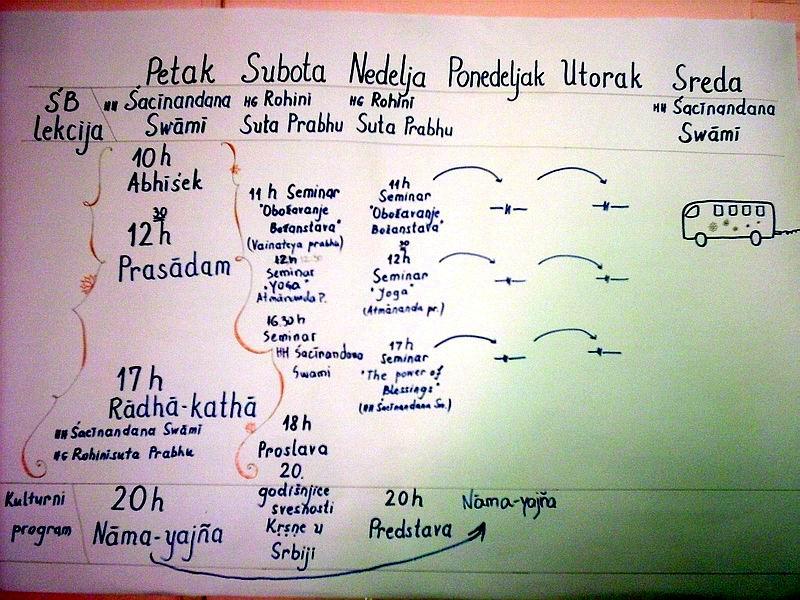 Petak Subota Nedelja Ponedeljak Utorak Sreda
ŚB
lekcija
HH Śacīnandana
Swāmī
HG Rohini
Suta Prabhu
HG Rohini
Suta Prabhu
HH Śacīnandana
Swāmī
10h
Abhiśek
12 30 h
Prasādam
17h
Rādhā-kathā
HH Śacīnandana Swāmī
HG Rohinisuta Prabhu
11 h Seminar
"Obožavanje
Božanstava"
(Vainateya prabhu)
12h 12:30
Seminar
"YOGA"
Atmānanda P.
16.30 h
Seminar
HH Śacīnandana
Swami
18h
Proslava
20.
godišnjice
svesnosti
Kṛṣṇe u
Srbiji
11h
Seminar
"Obožavanje
Božanstava"
12 30 h
Seminar
"Yoga"
(Atmānanda pr.)
17h
Seminar
"The power of
Blessings"
(HH Śacīnandana Sw.)
-"-
-"-
-"-
-"-
-"-
-"-
Kulturni
program
20h
Nāma-yajña
20h
Predstava
Nāma-yajña